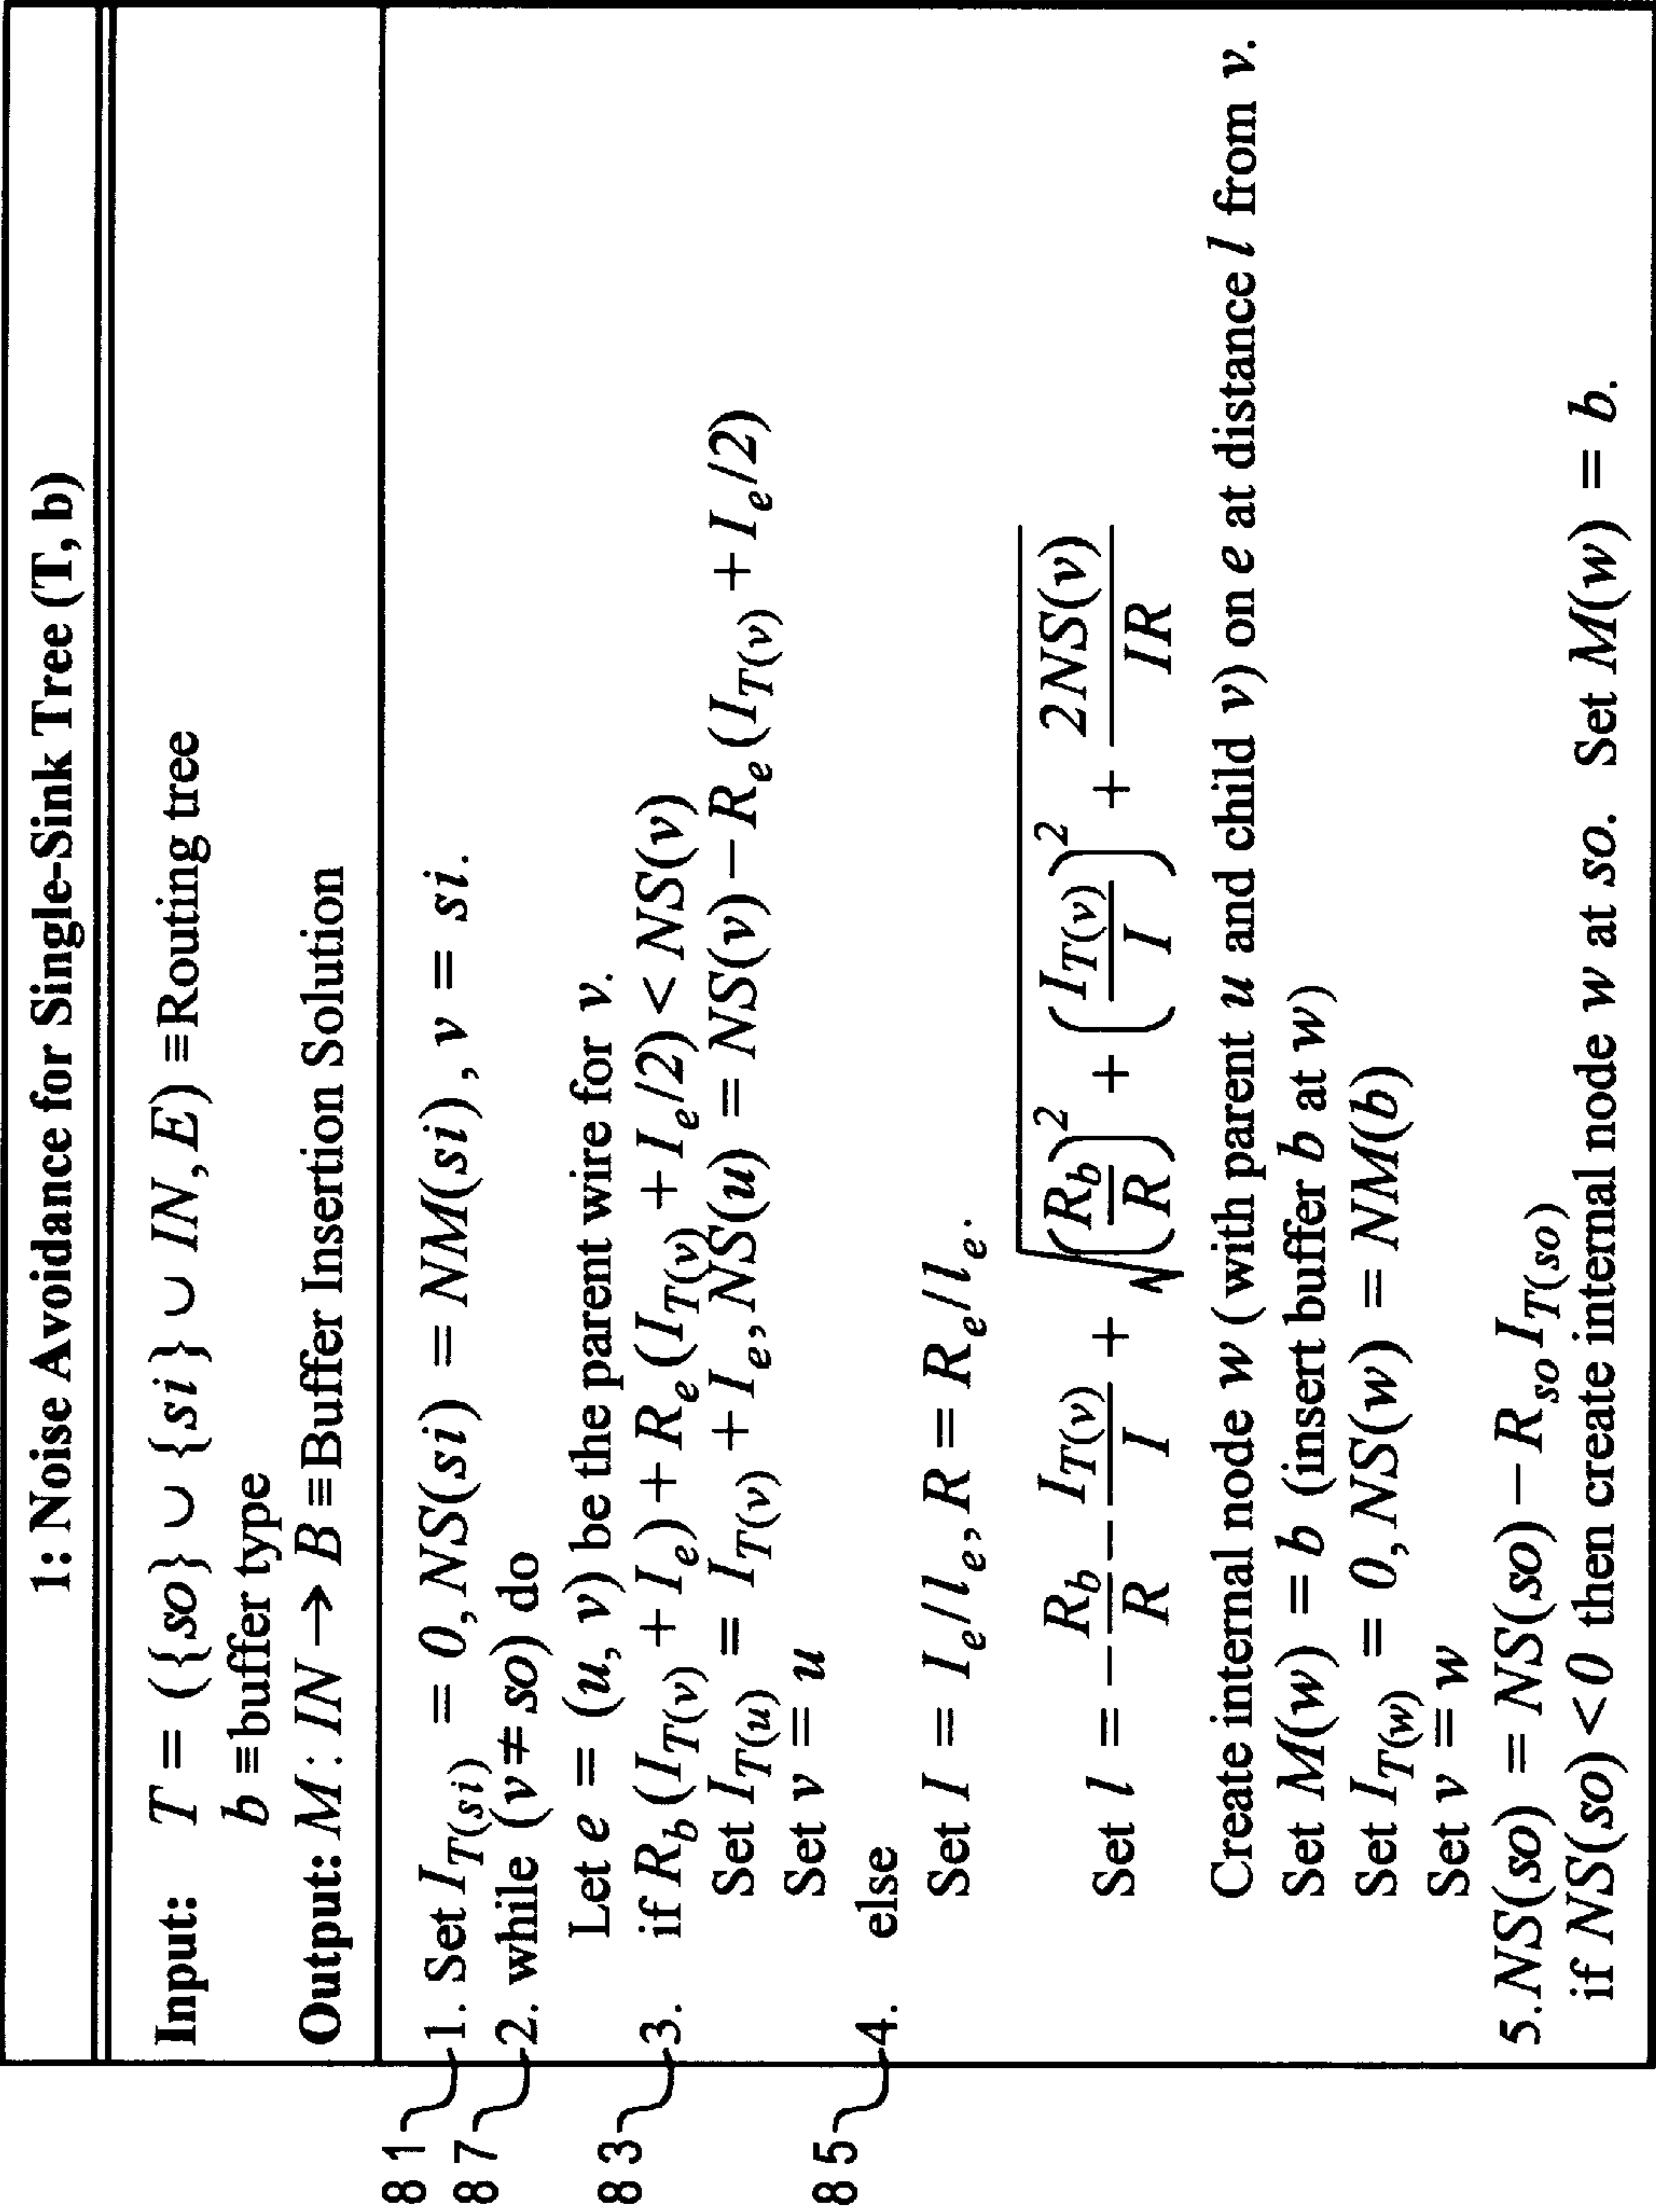 1: Noise Avoidance for Single-Sink Tree (T, b)
Input: T = ({so} ∪ {si} ∪ IN, E) ≡Routing tree
b ≡buffer type
Output: M: IN → B ≡Buffer Insertion Solution
81 1. Set I_{T(si)} = 0, NS(si) = NM(si), v = si.
87 2. while (v ≠ so) do
Let e = (u, v) be the parent wire for v.
83 3. if R_b (I_{T(v)} + I_e) + R_e (I_{T(v)} + I_e/2) < NS(v)
Set I_{T(u)} = I_{T(v)} + I_e, NS(u) = NS(v) − R_e (I_{T(v)} + I_e/2)
Set v = u
85 4. else
Set I = I_e/l_e, R = R_e/l_e.
Set l = −R_b/R − I_{T(v)}/I + √((R_b/R)^2 + (I_{T(v)}/I)^2 + 2NS(v)/IR)
Create internal node w (with parent u and child v) on e at distance l from v.
Set M(w) = b (insert buffer b at w)
Set I_{T(w)} = 0, NS(w) = NM(b)
Set v = w
5. NS(so) = NS(so) − R_{so} I_{T(so)}
if NS(so) < 0 then create internal node w at so. Set M(w) = b.